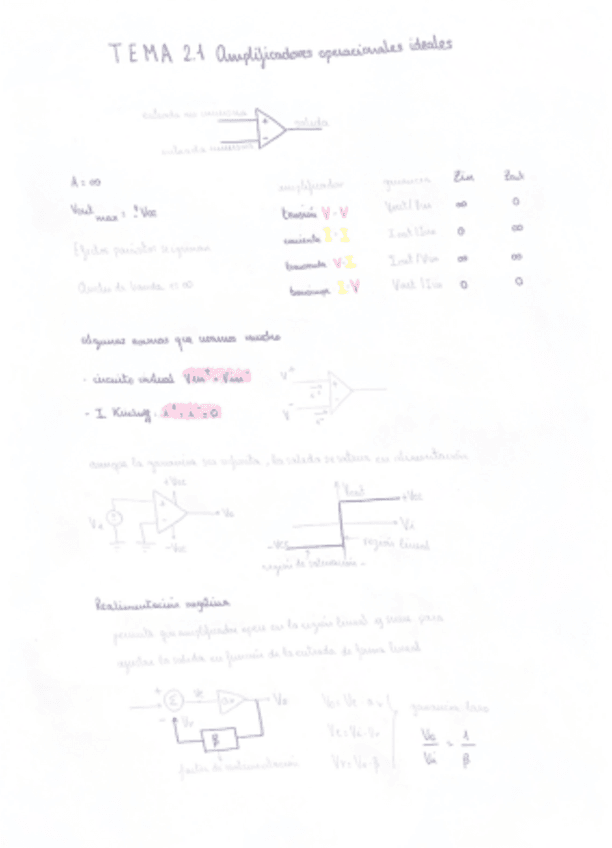 TEMA 2.1 Amplificadores operacionales ideales
entrada no inversora
+
salida
-
entrada inversora
A = ∞
amplificador ganancia Zin Zout
Vout max = ±Vcc
tensión V-V Vout/Vin ∞ 0
corriente I-I Iout/Iin 0 ∞
Efectos parásitos
V-I Iout/Vin ∞ ∞
Ancho de banda = ∞
I-V Vout/Iin 0 0
algunas normas que usamos mucho
· circuito virtual Vin⁺ = Vin⁻
V⁺
i⁺
- I. i⁺ = i⁻ = 0
V⁻
i⁻
aunque la ganancia sea infinita, la salida se satura en alimentación
+Vcc
Vout
+Vcc
Vo
Vi
-Vcc
-Vcc
región lineal
región de saturación
Realimentación negativa
permite que amplificador opere en la región lineal y sirve para
ajustar la salida en función de la entrada de forma lineal
+
Σ
Ve
Vo
-
Vr
β
Ve = Vi - Vr
Vr = Vo · β
ganancia lazo
Vo/Vi = 1/β
factor de